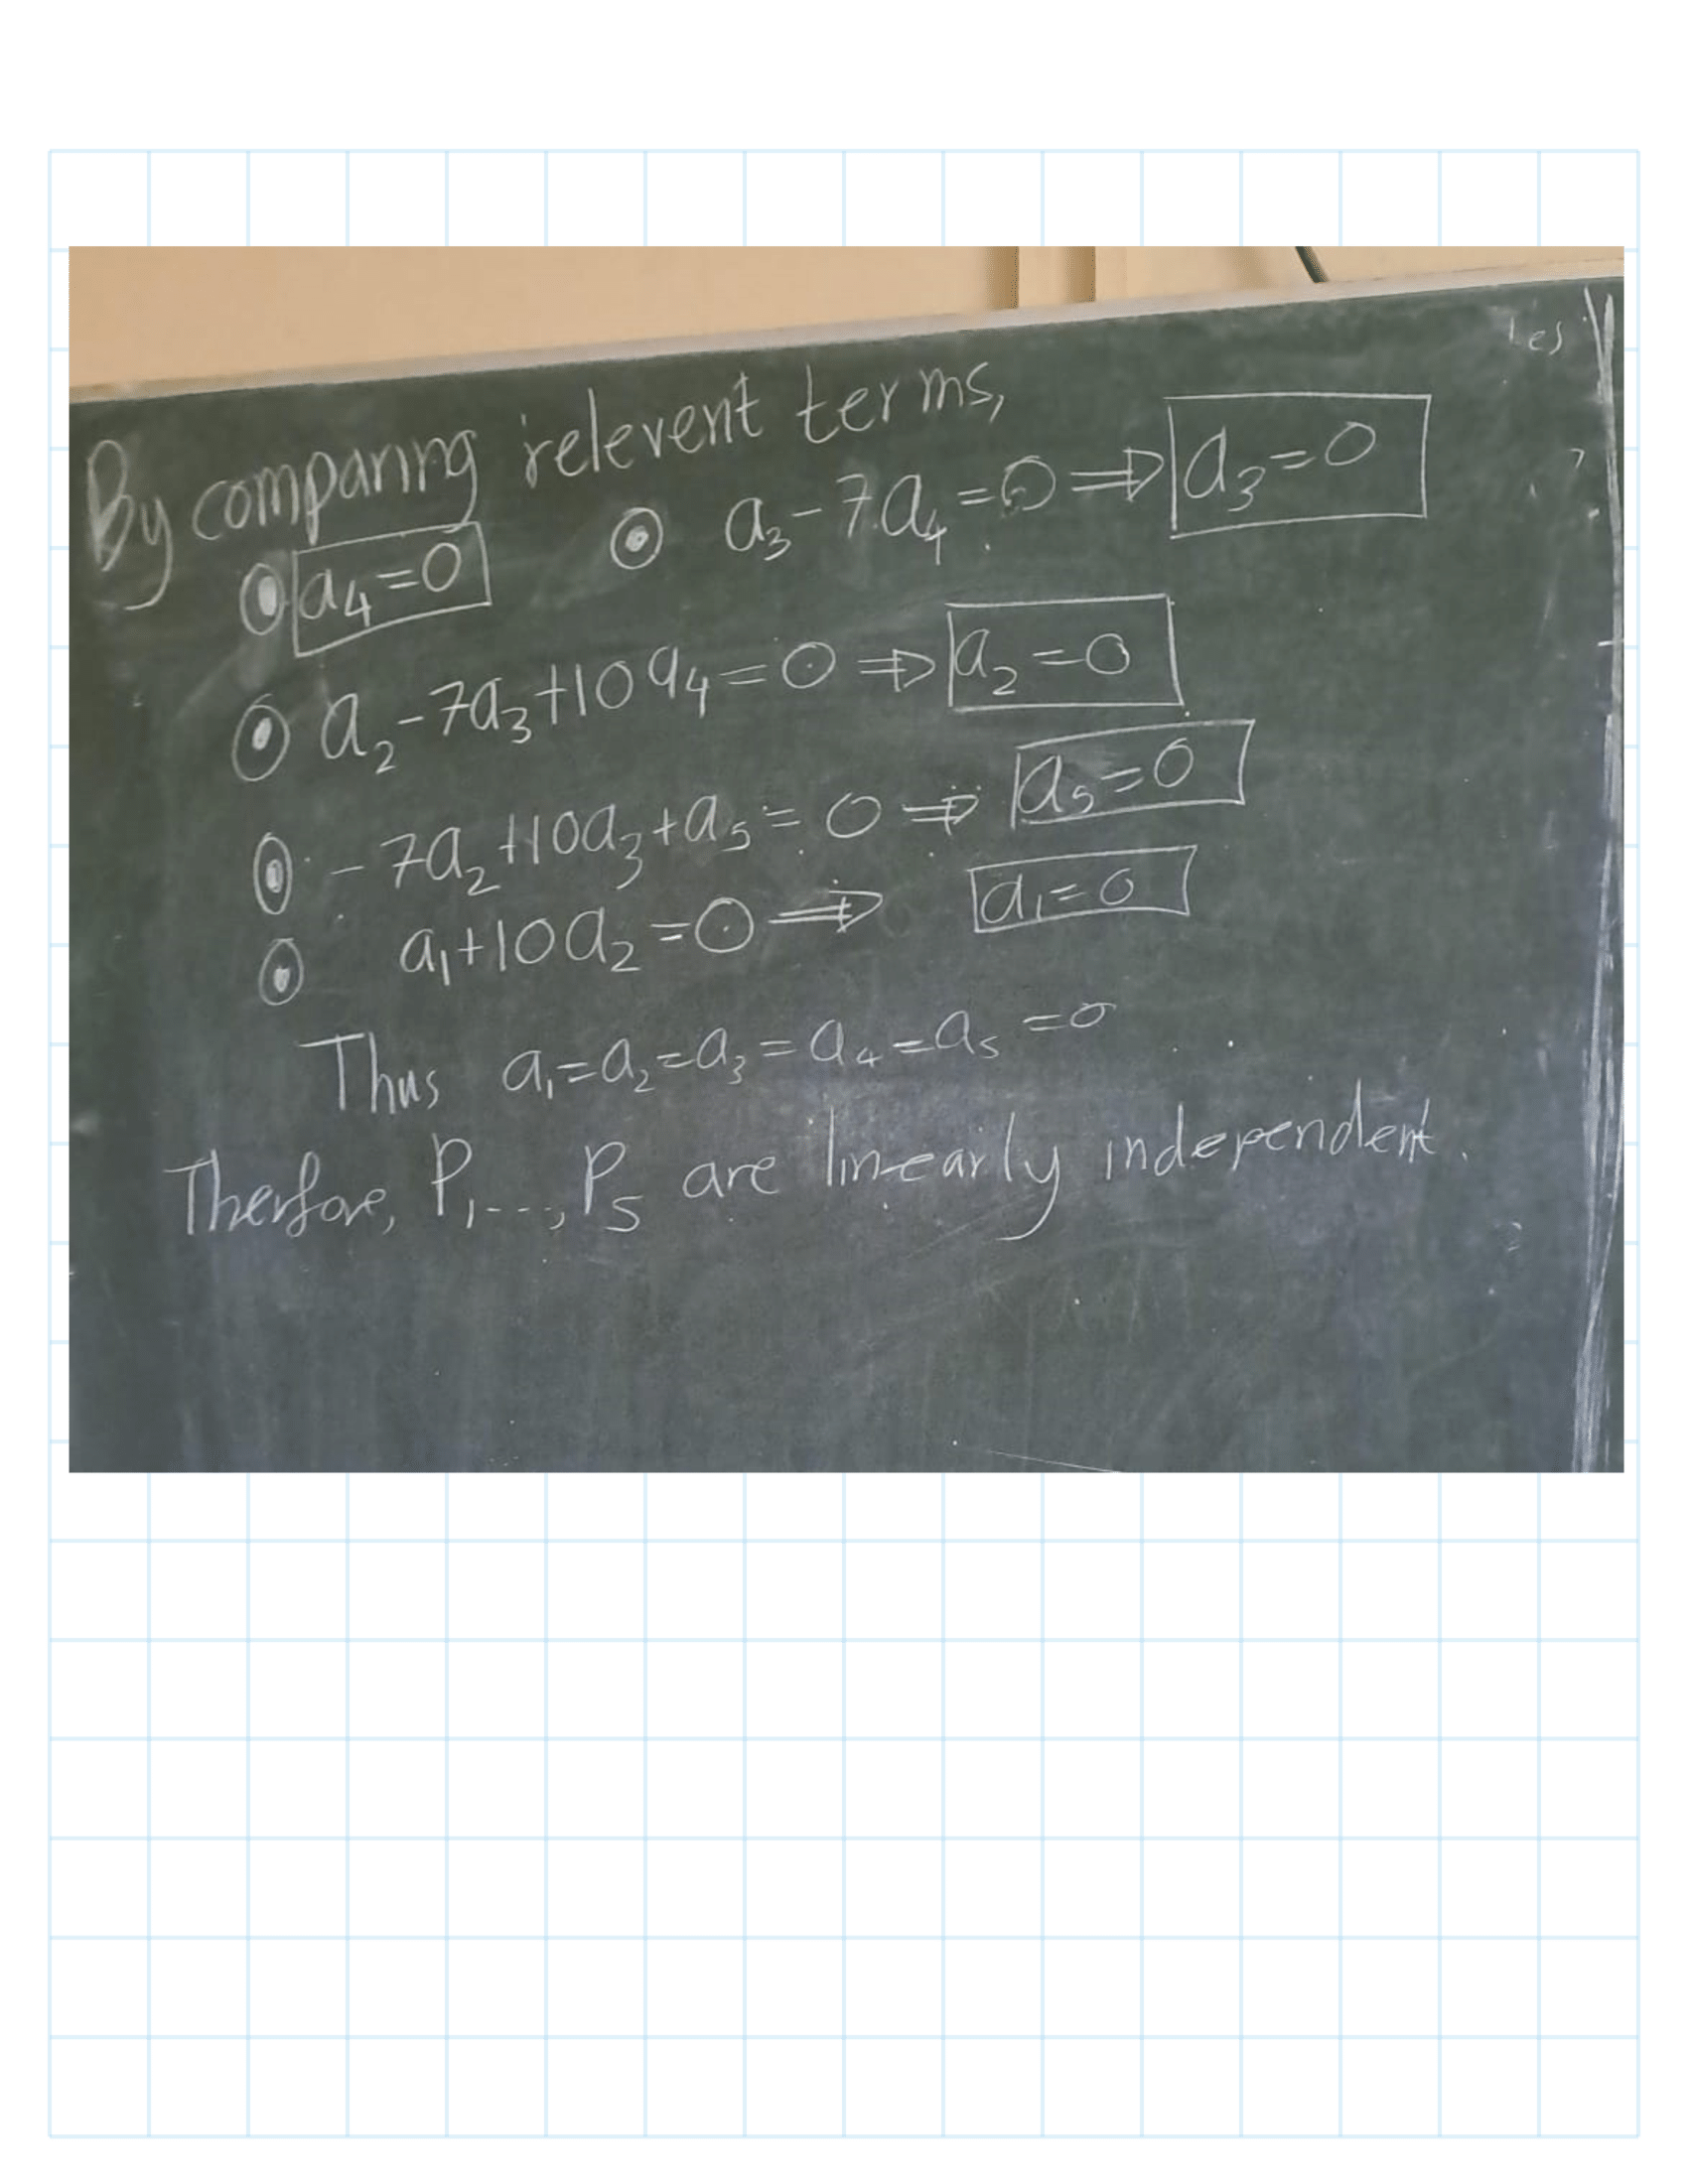 By comparing relevent terms,
⊙ a₄=0 ⊙ a₃-7a₄=0 ⇒ a₃=0
⊙ a₂-7a₃+10a₄=0 ⇒ a₂=0
⊙ -7a₂+10a₃+a₅=0 ⇒ a₅=0
⊙ a₁+10a₂=0 ⇒ a₁=0
Thus a₁=a₂=a₃=a₄=a₅=0
Therfore, P₁,...,P₅ are linearly independent.